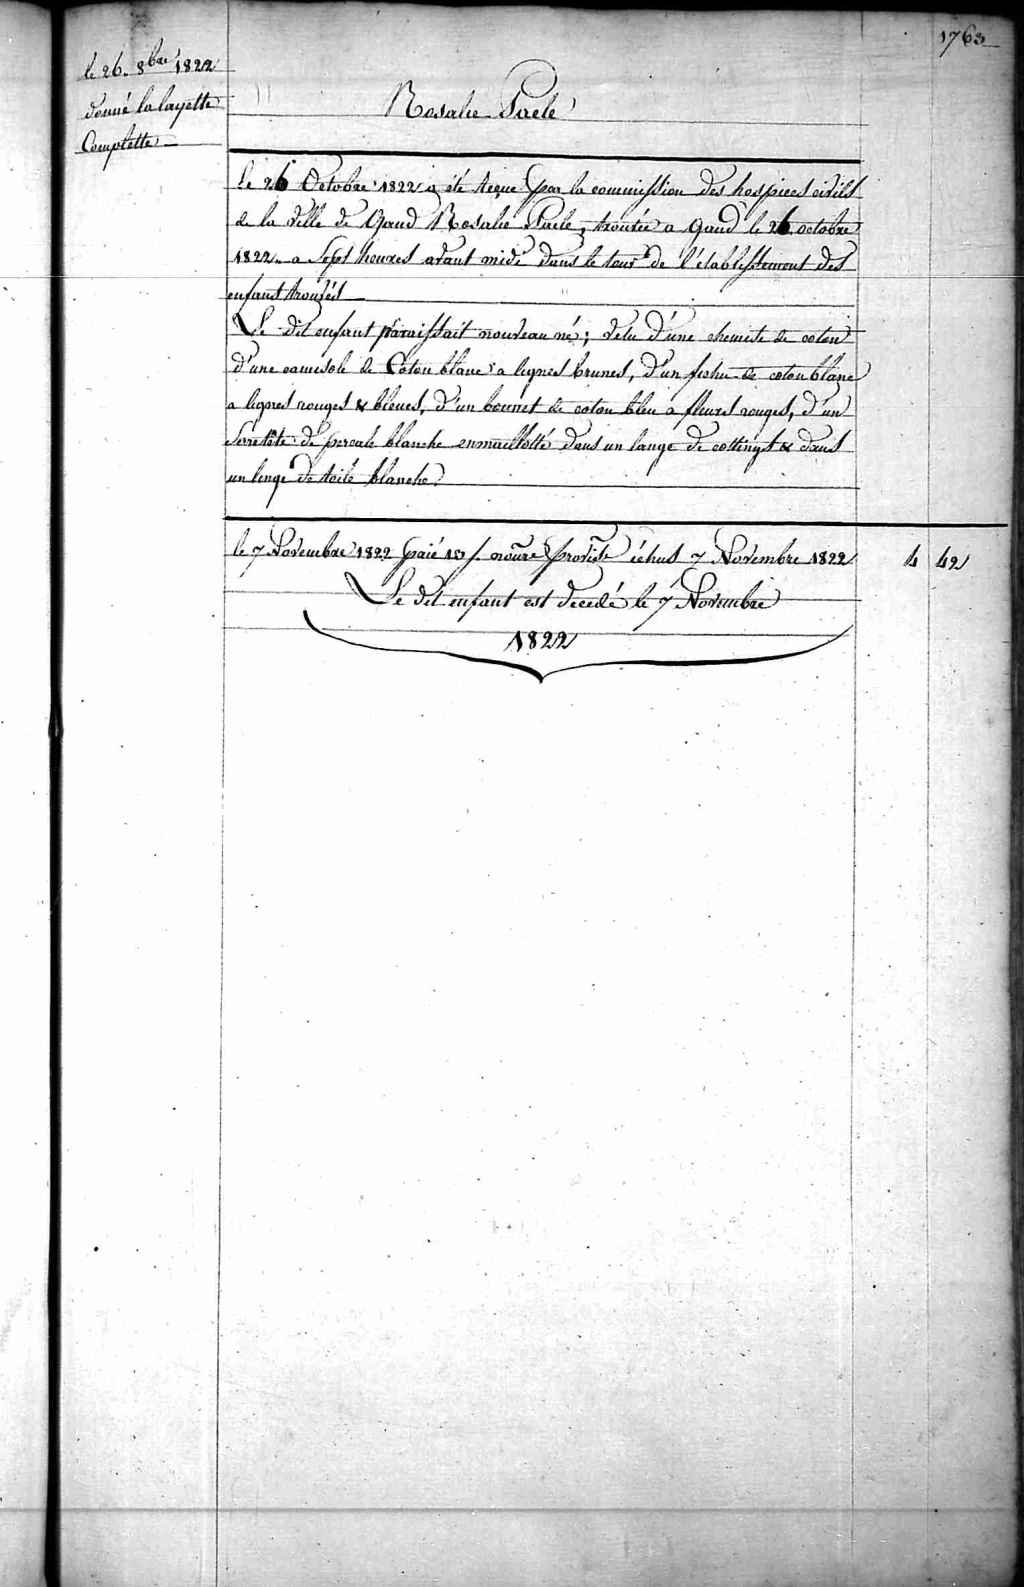 1763
le 26. 8bre 1822
donné la layette
Complette
Rosalie Paele
le 26 Octobre 1822 a été reçue par la commission des hospices civils
de la ville de Gand Rosalie Paele, trouvée a gand le 26 octobre
1822. a Sept heures avant midi dans le tour de l'établissement des
enfans trouvés
Le dit enfant paraissait nouveau né; vetu d'une chemise de coton
d'une camisole de Coton blanc a lignes brunes, d'un fichu de coton blanc
a lignes rouges & bleues, d'un bonnet de coton bleu a fleurs rouges, d'un
Serretête de percale blanche enmaillotté dans un lange de & dans
un linge de toile blanche
le 7 Novembre 1822 paié échus 7 Novembre 1822 4 42
Le dit enfant est decedé le 7 Novembre
1822